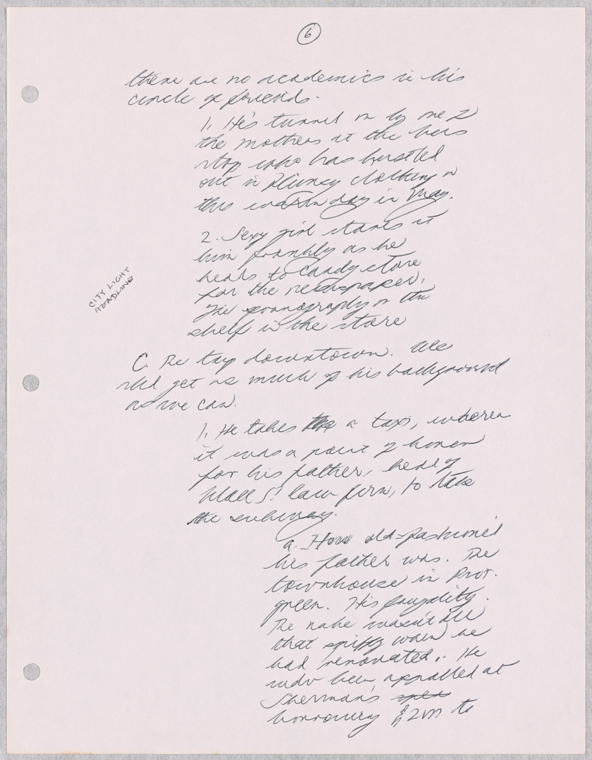 6
there are no academics in his
circle of friends.
1. He's turned on by one of
the mothers at the bus
stop who has hustled
out in flimsy clothing on
this warm day in May.
2. Sexy girl stares at
him frankly as he
heads to candy store
for the newspaper.
The pornography on the
shelf in the store
CITY LIGHT
HEADLINE
C. The trip downtown. We
shd get as much of his background
as we can.
1. He takes a taxi, whereas
it was a point of honor
for his father, head of
Wall St. law firm, to take
the subway.
a. How old-fashioned
his father was. The
townhouse in
green. His frugality.
The wasn't all
that spiffy when he
had renovated. He
wdv been appalled at
Sherman's
borrowing $2m to